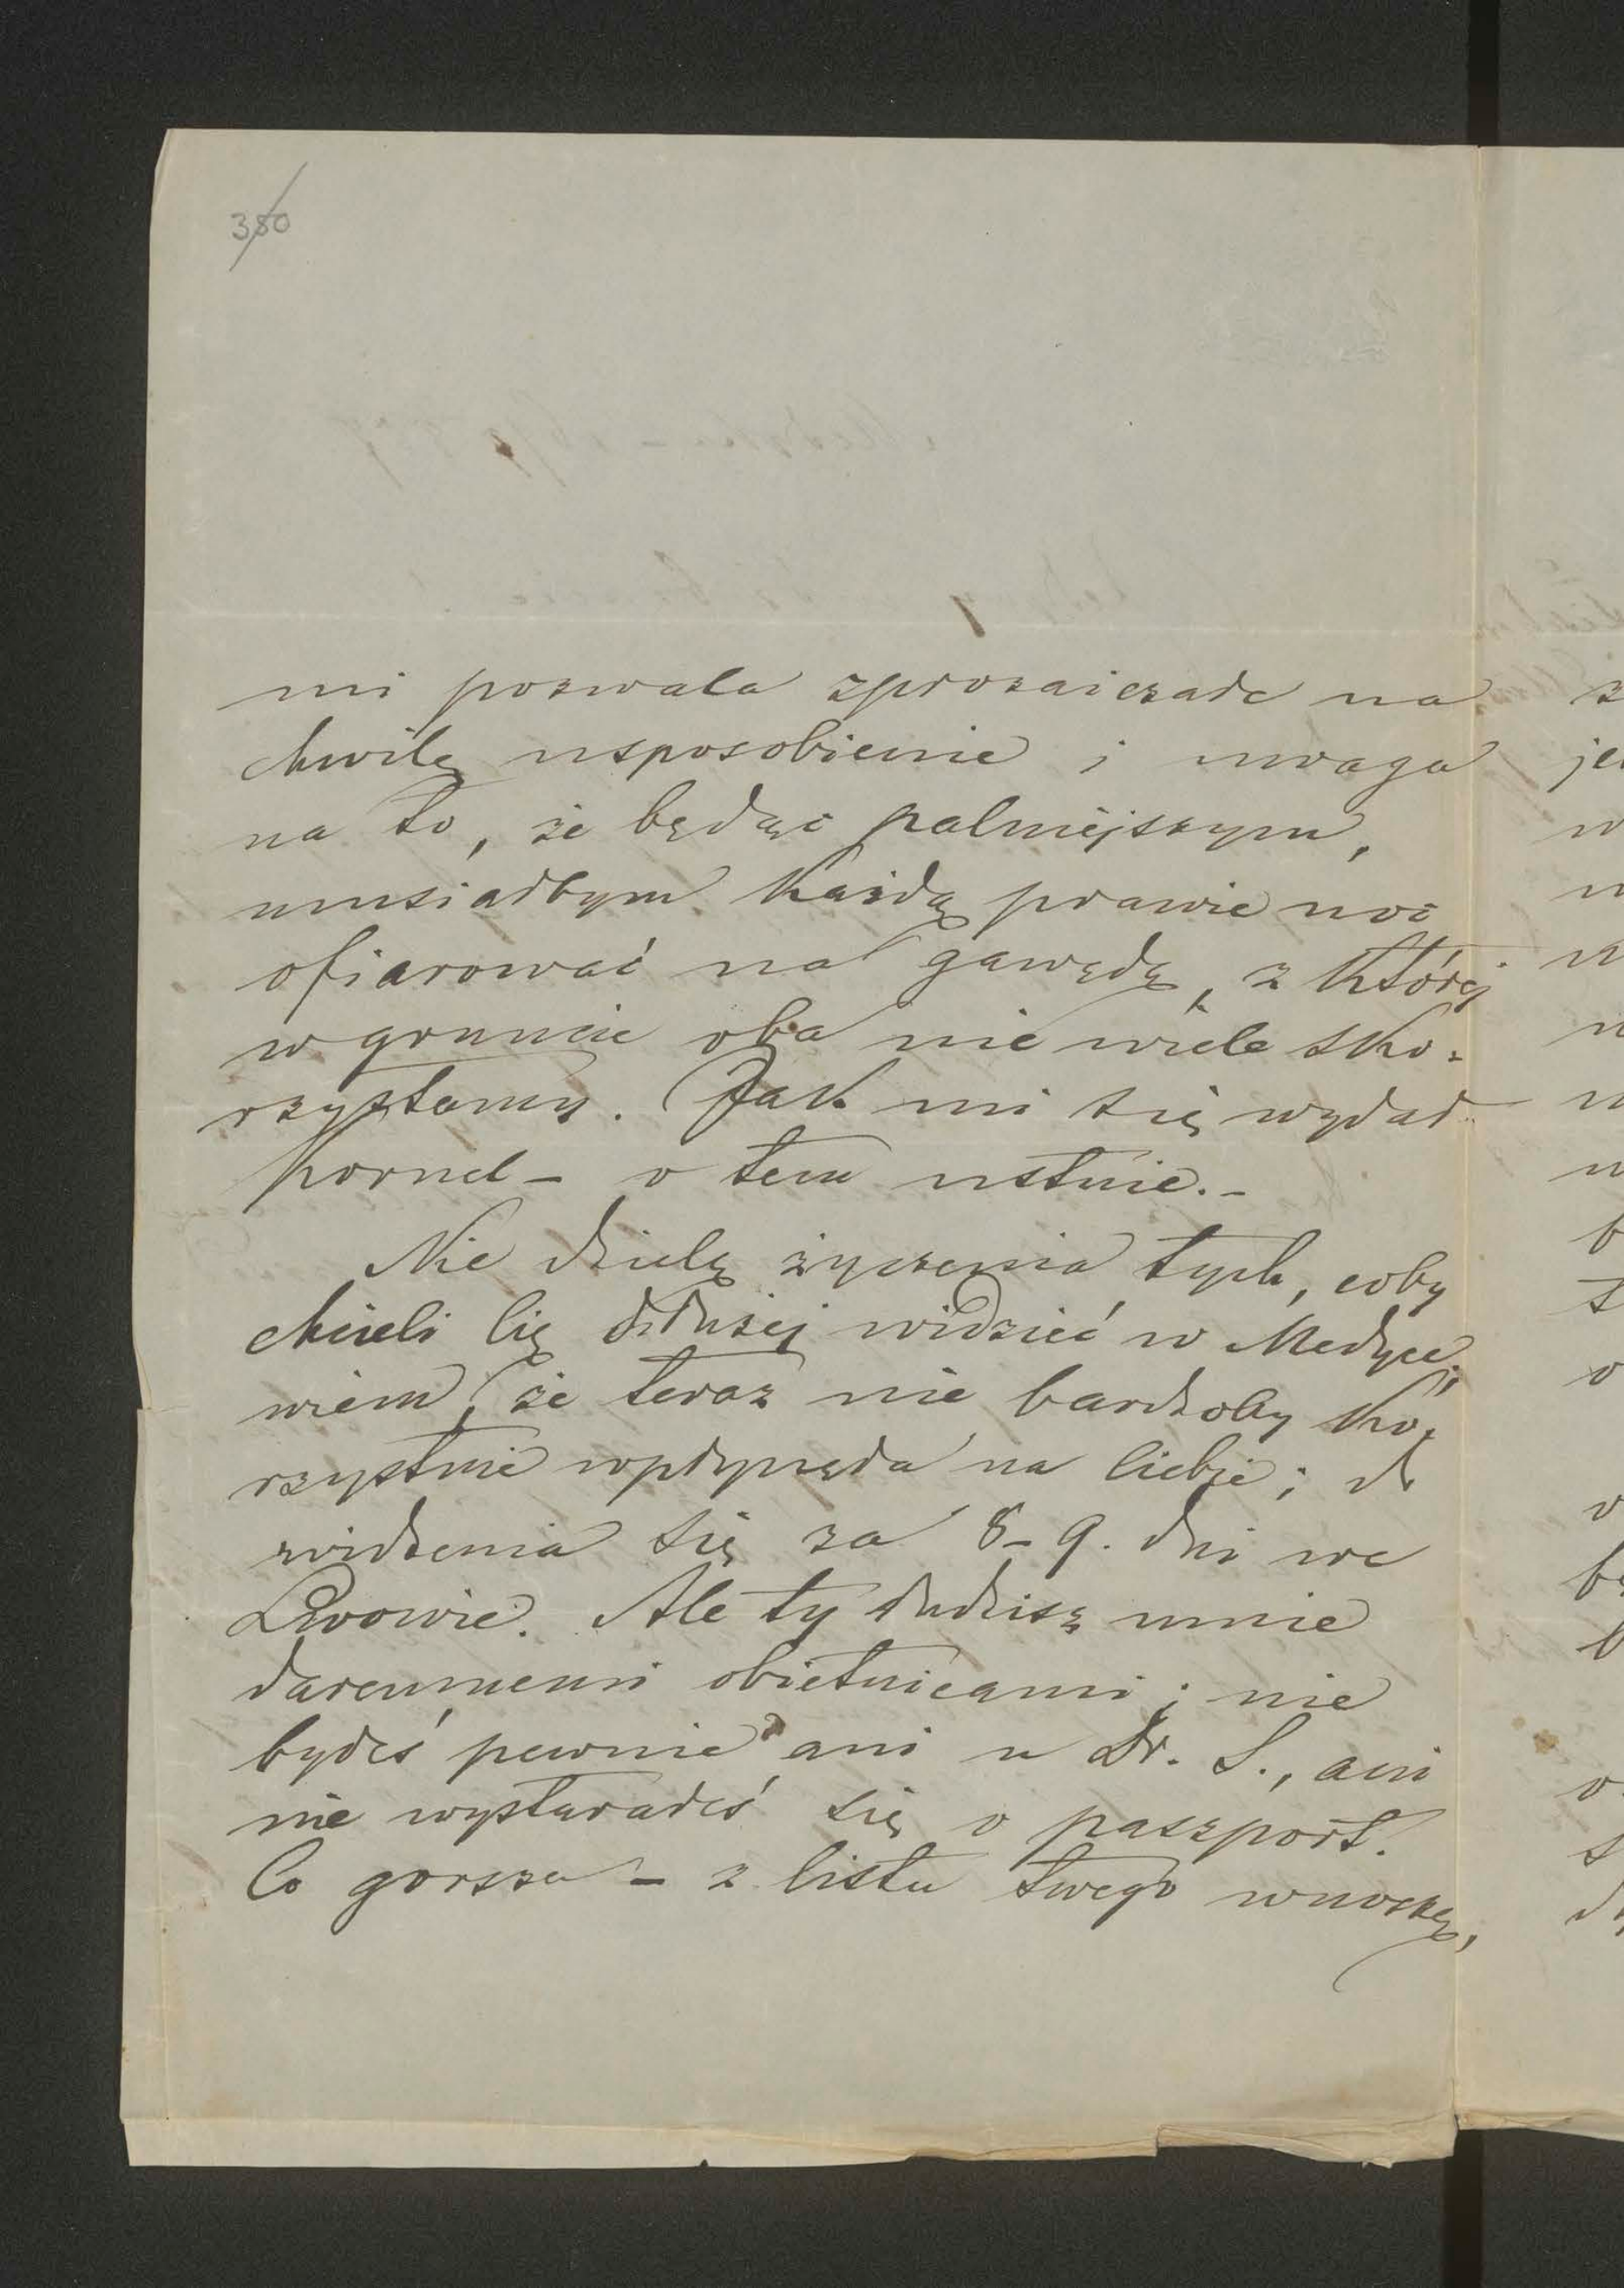 380
mi pozwala sprozaiczałe na
chwilę usposobienie i uwaga
na to, że będąc palniejszym,
musiałbym każdą prawie noc
ofiarować na gawędę, z której
w gruncie oba nie wiele sko-
rzystamy. Jak mi się wydał
Kornel – o tem ustnie. –
Nie dzielę życzenia tych, coby
chcieli Cię dłużej widzieć w Medyce;
wiem, że teraz nie bardzoby ko-
rzystnie wpłynęła na Ciebie; do
widzenia się za 8 – 9. dni we
Lwowie. Ale ty łudzisz mnie
daremnemi obietnicami; nie
byłeś pewnie ani u Dr. S., ani
nie wystarałeś się o paszport.
Co gorsza – z listu twego wnoszę,